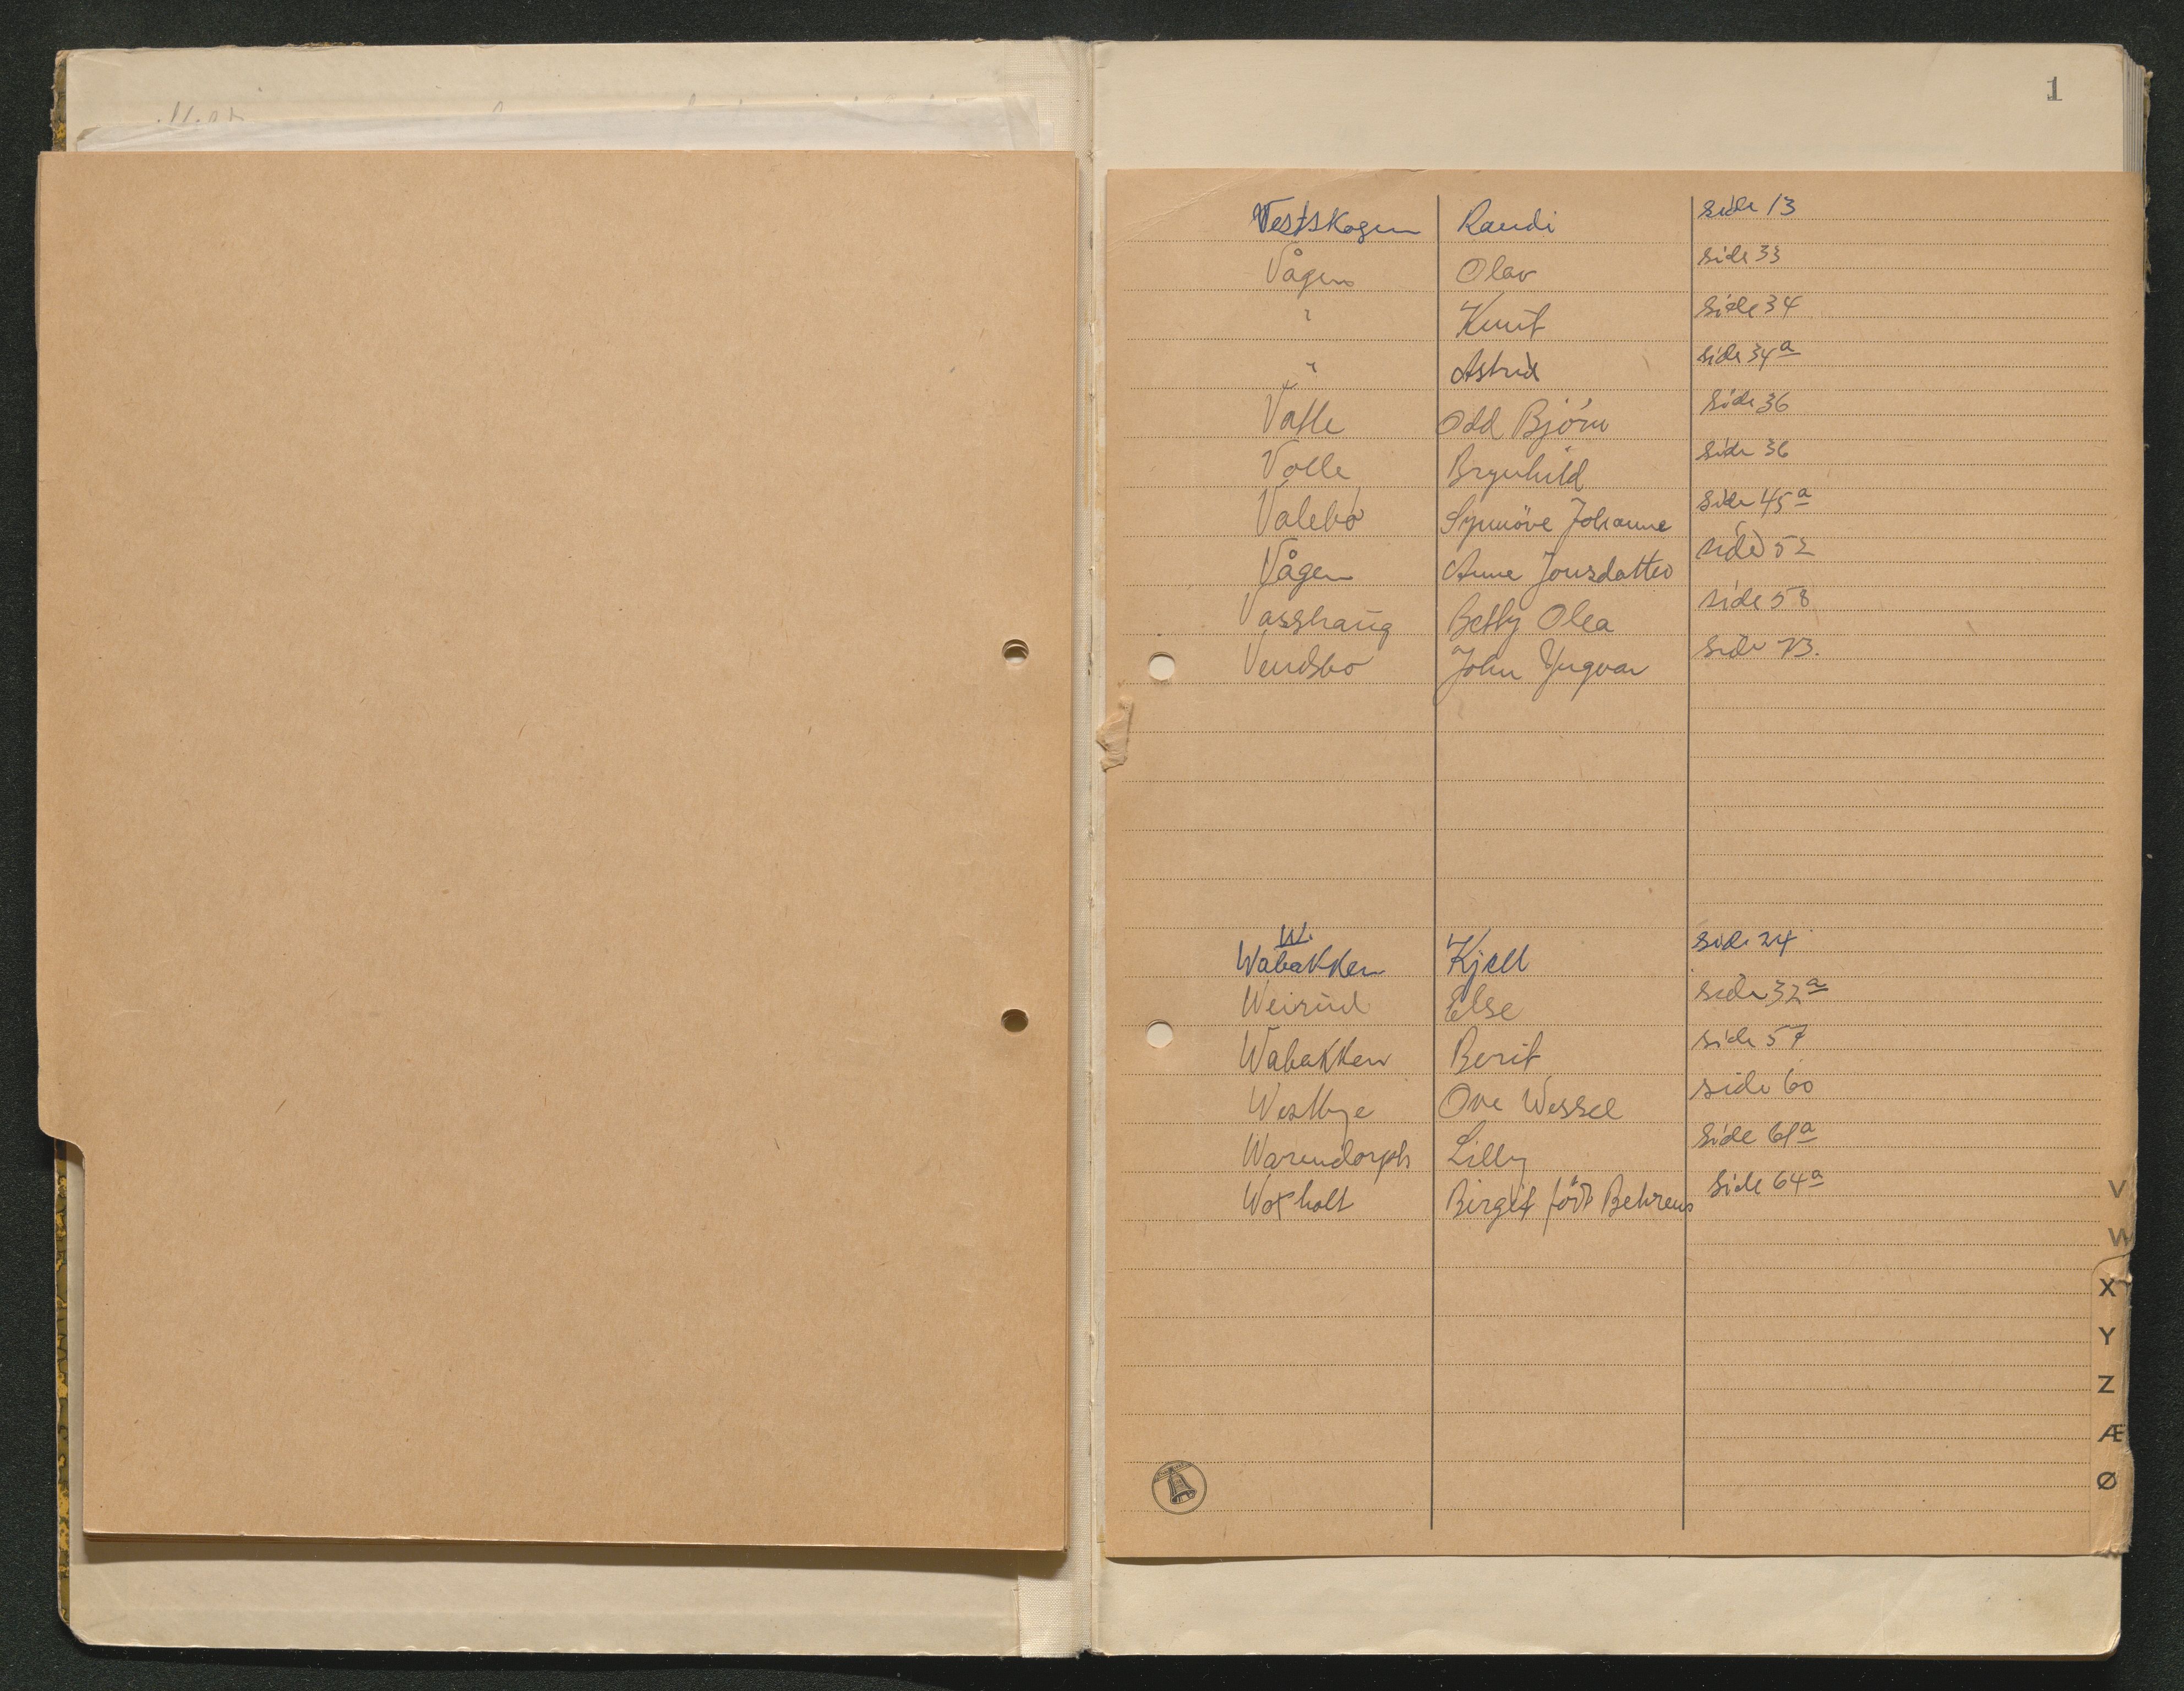 1
Vestskogen Randi side 13
Vågen Olav side 33
" Knut side 34
" Astrid side 34a
Valle Odd Björn side 36
Volle Brynhild side 36
Valebø Synnöve Johanne side 45a
Vågen Anne Jonsdatter side 52
Vasshaug Betty Olea side 58
Vendsbo John Yngvar side 73.
W.
Wabakken Kjell side 24
Weirud Else side 32a
Wabakken Berit side 57
Westbye Ove Wessel side 60
Warendorph Lilly side 61a
Woxholt Birgit födt Behrens side 64a
V
W
X
Y
Z
Æ
Ø